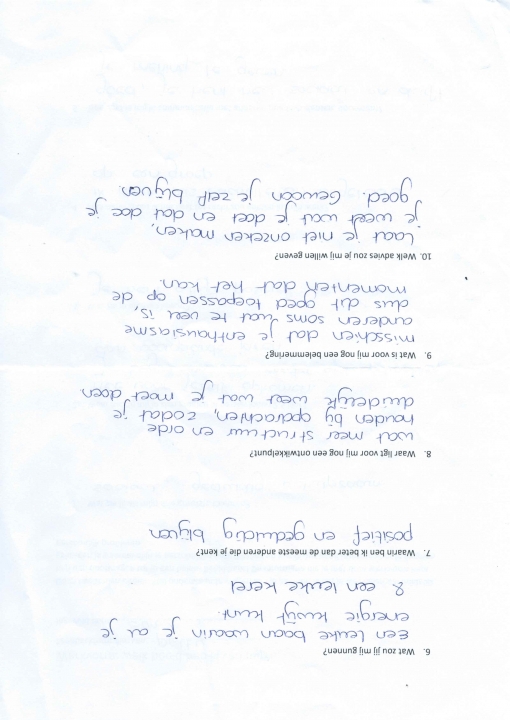 6. Wat zou jij mij gunnen?
Een leuke baan waarin je al je
energie kwijt kunt.
& een leuke kerel
7. Waarin ben ik beter dan de meeste anderen die je kent?
positief en geduldig blijven
8. Waar ligt voor mij nog een ontwikkelpunt?
wat meer structuur en orde
houden bij opdrachten, zodat je
duidelijk weet wat je moet doen
9. Wat is voor mij nog een belemmering?
misschien dat je enthousiasme
anderen soms wat te veel is,
dus dit goed toepassen op de
momenten dat het kan.
10. Welk advies zou je mij willen geven?
Laat je niet onzeker maken,
je weet wat je doet en dat doe je
goed. Gewoon je zelf blijven.